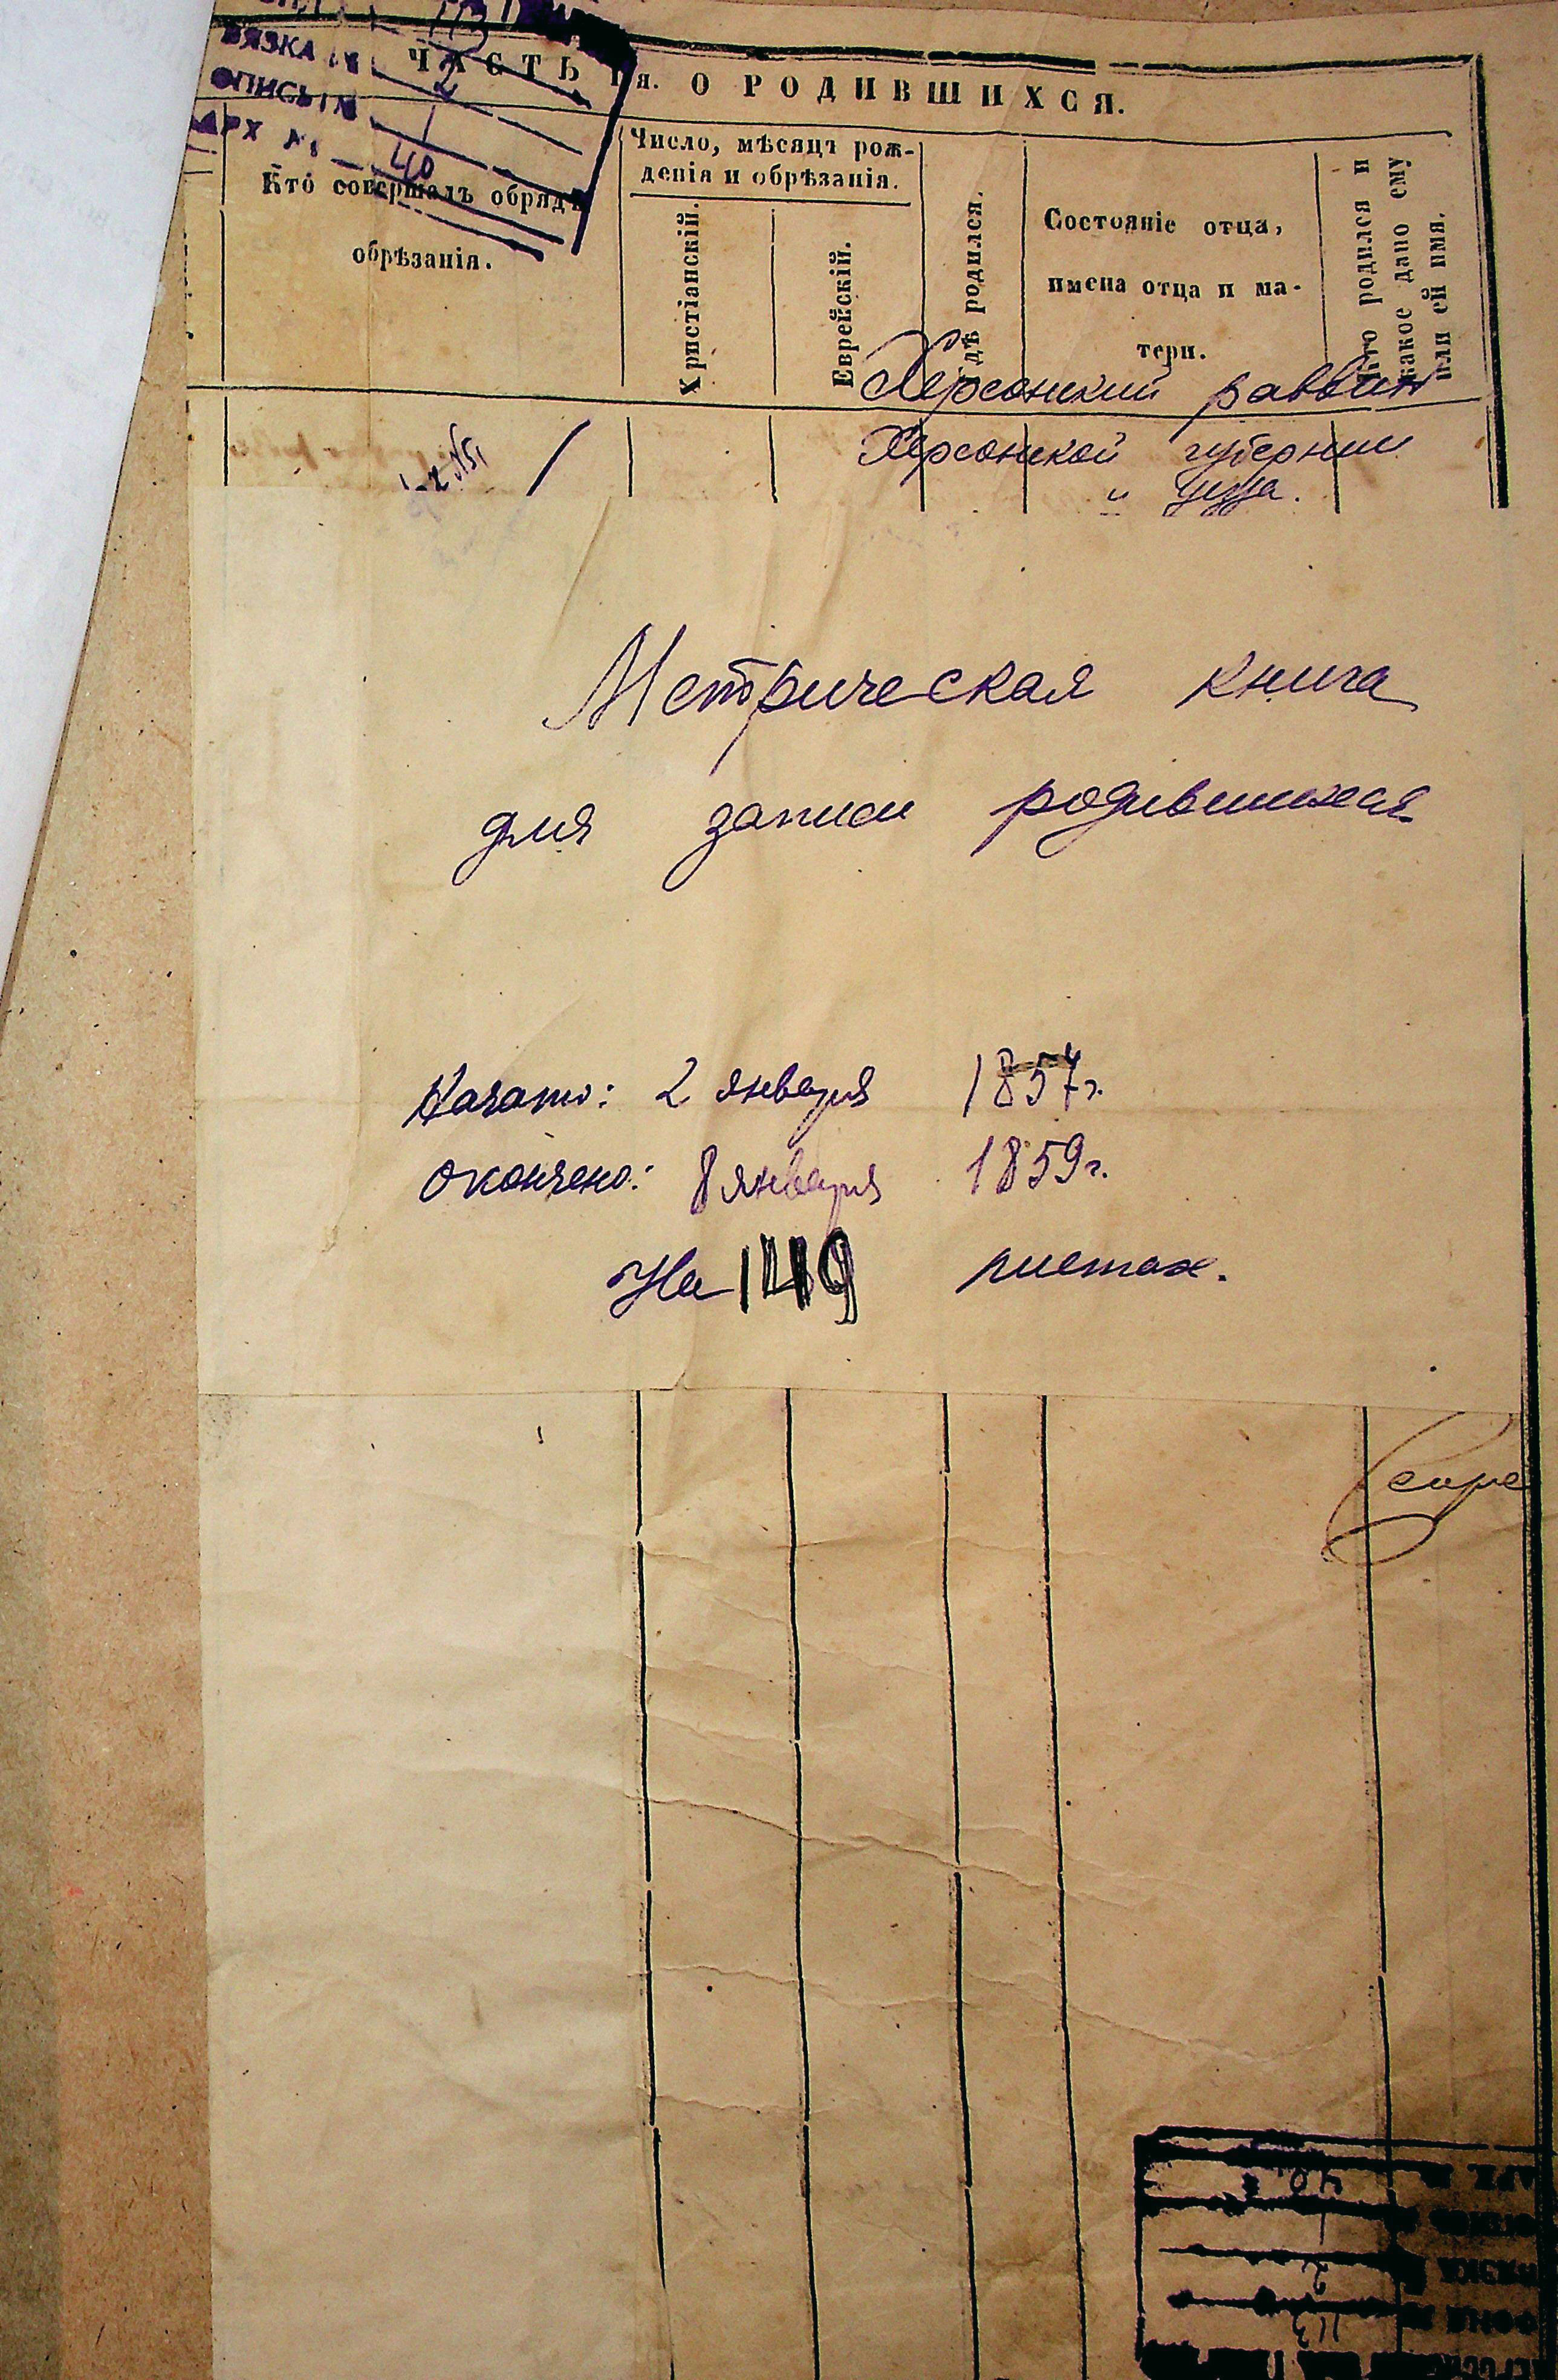 113
ВЯЗКА № 2
ОПИСЬ № 1
АРХ № 40
ЧАСТЬ 1я. О РОДИВШИХСЯ.
Кто совершалъ обрядъ
обрѣзанія.
Число, мѣсяцъ рож-
денія и обрѣзанія.
Христіанскій.
Еврейскій.
Гдѣ родился.
Состояніе отца,
имена отца и ма-
тери.
Кто родился и
какое дано ему
или ей имя.
Херсонский раввин
Херсонской губернии
и уезда.
Метрическая книга
для записи родившихся
Начато: 2 января 1857г.
Окончено: 8 января 1859г.
На 149 листах.
Секре
АРХ. № 40
ОПИСЬ № 1
ВЯЗКА № 2
ФОНД № 113